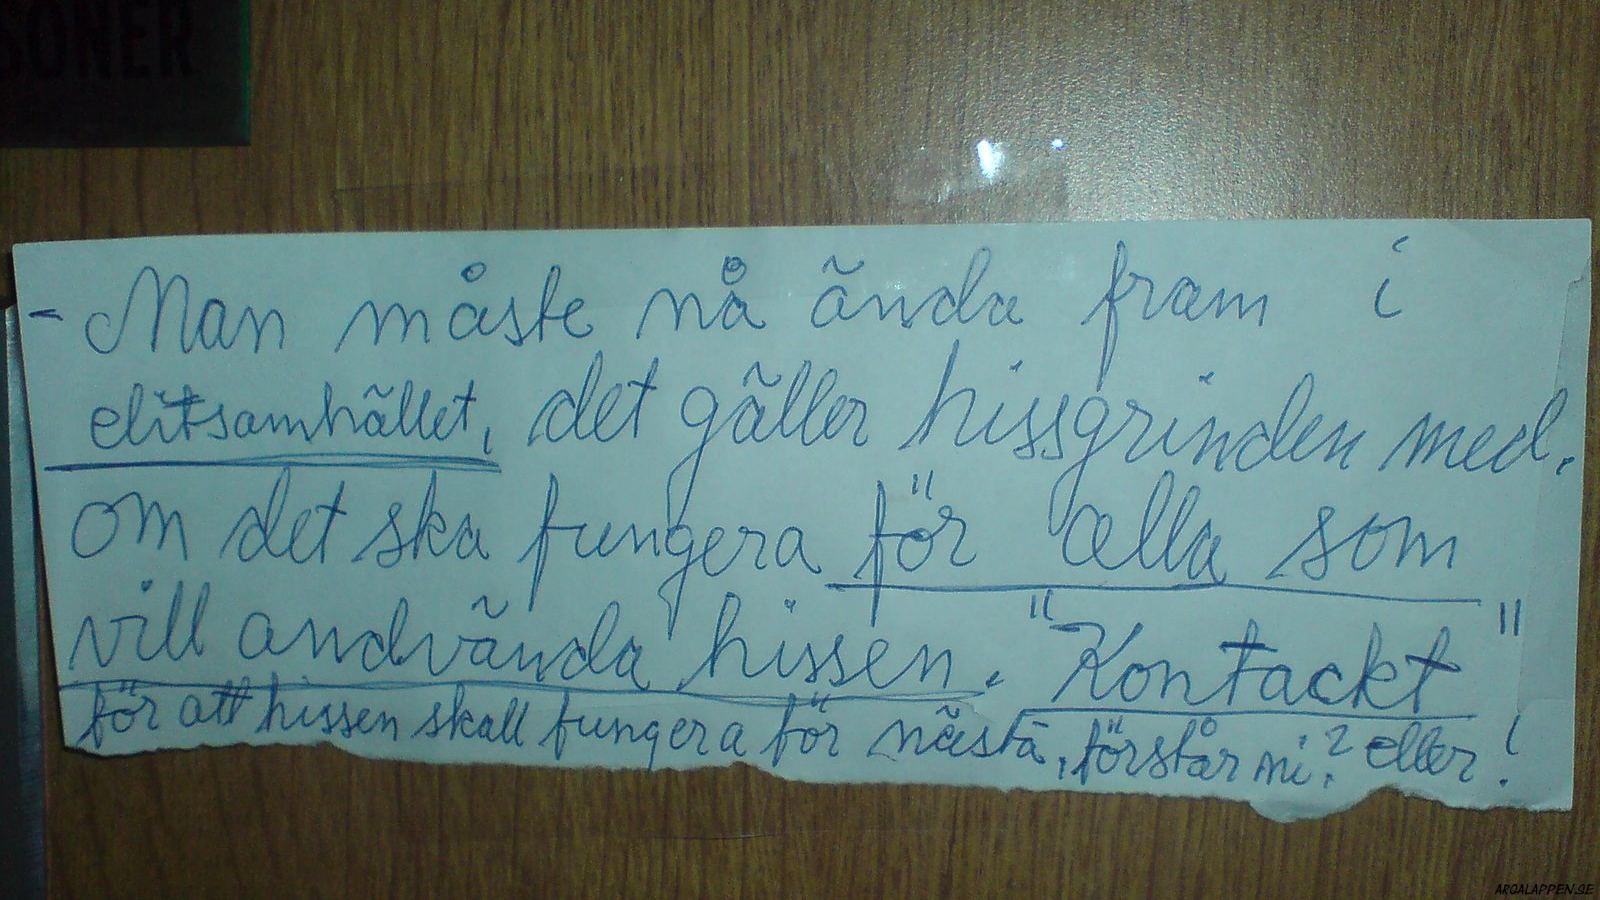 SONER
- Man måste nå ända fram i
elitsamhället, det gäller hissgrinden med.
om det ska fungera för alla som
vill andvända hissen. "Kontackt"
för att hissen skall fungera för nästa, förstår ni,? eller!
ARGALAPPEN.SE